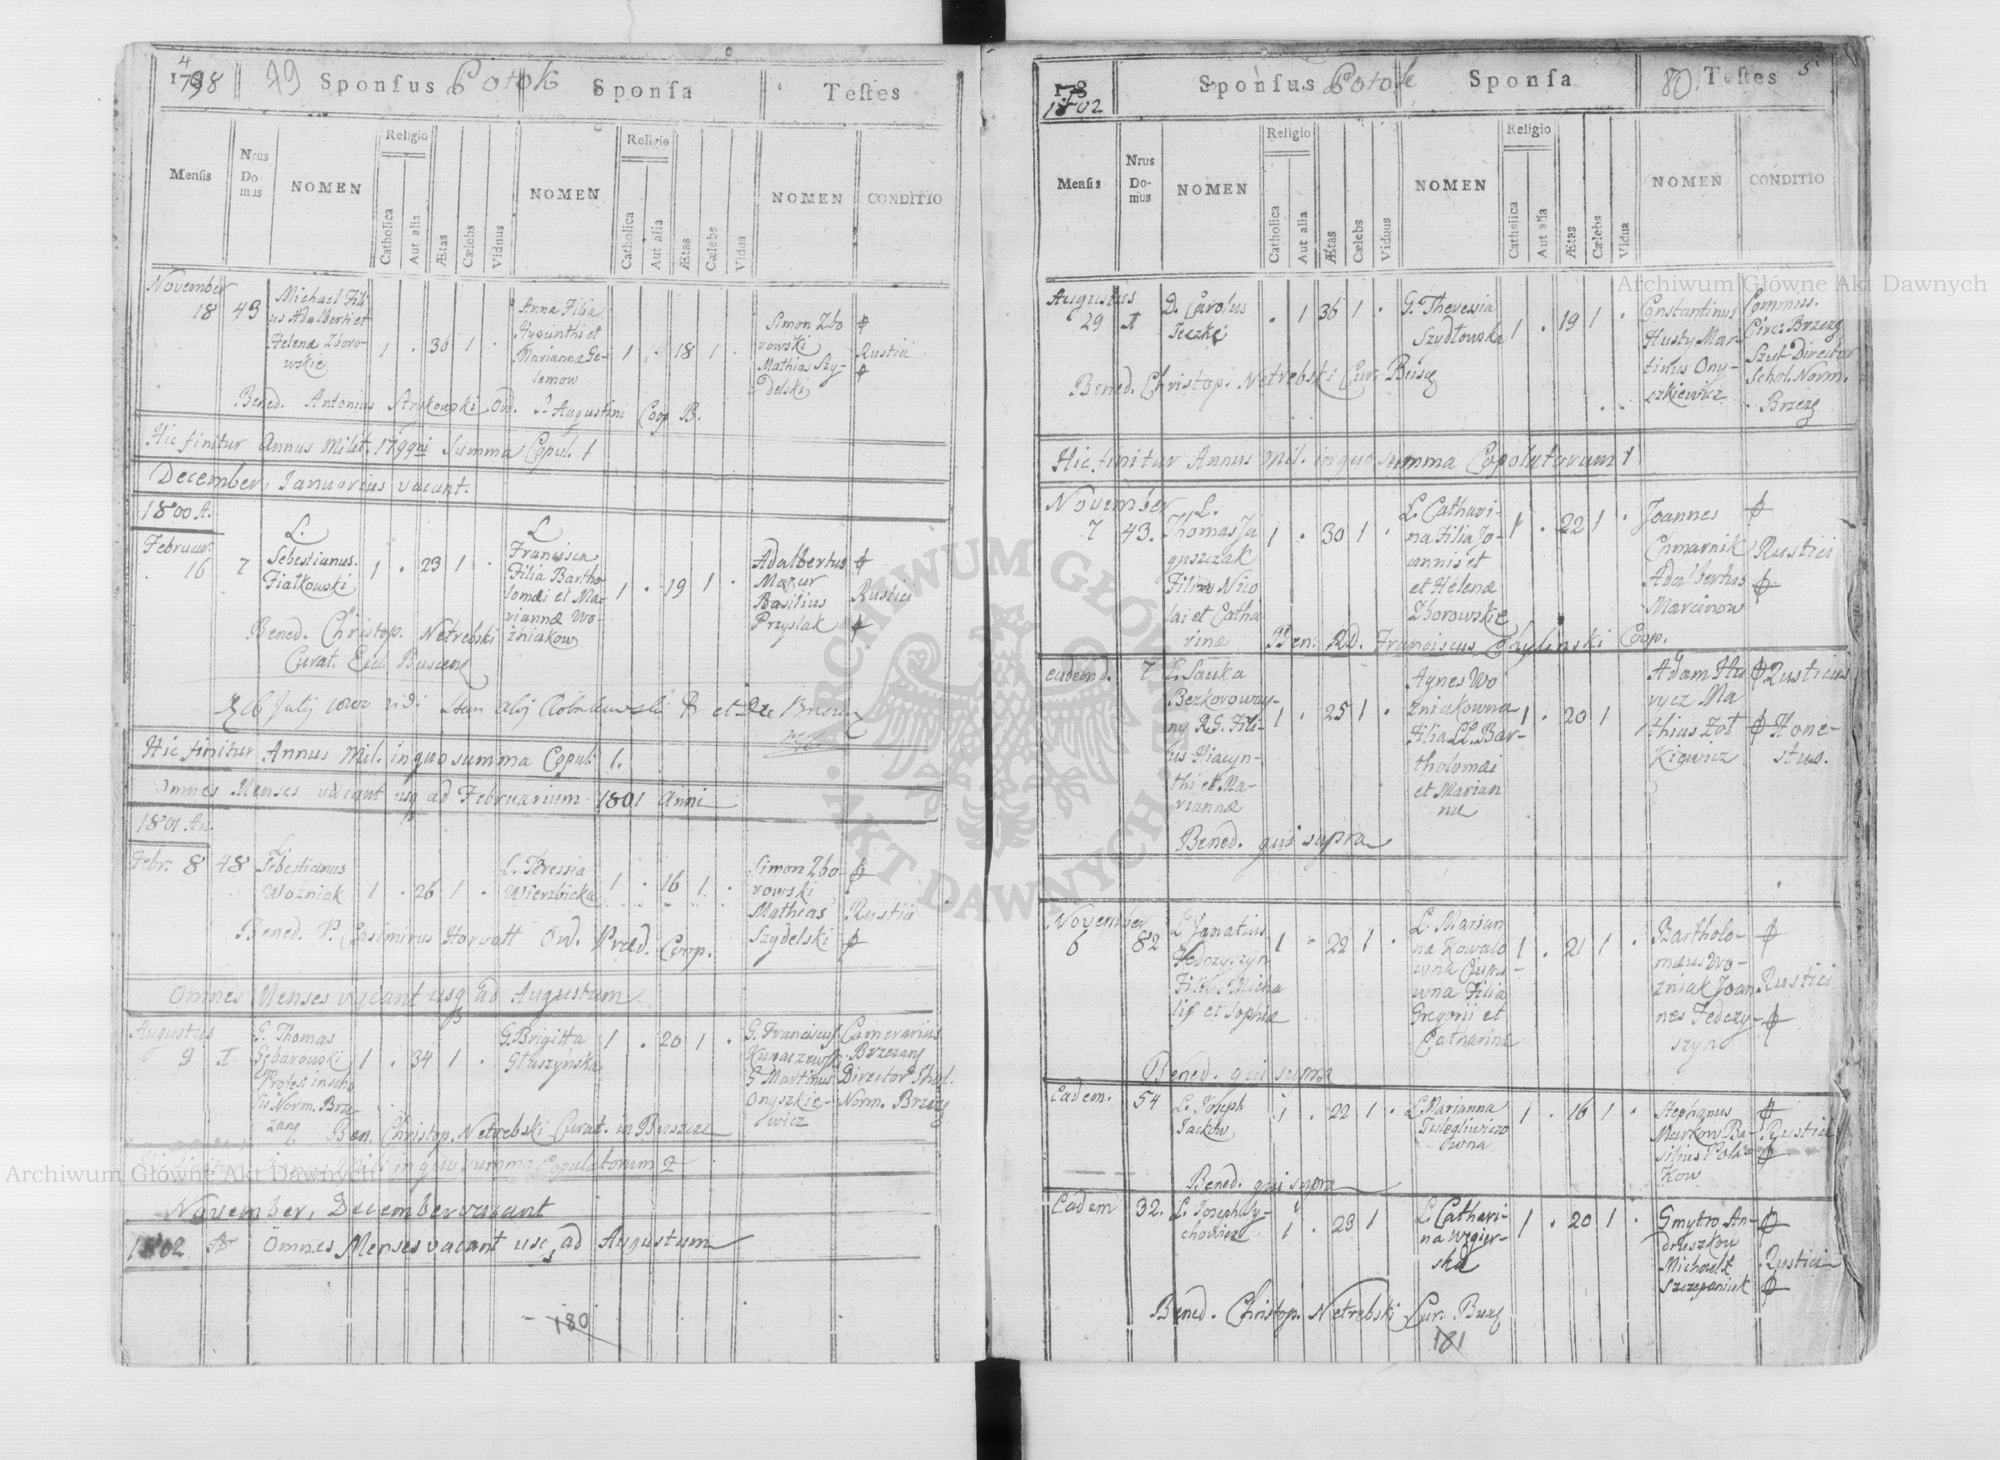 4
1798 79 Sponſus Potok Sponſa Teſtes
Menſis
Nrus
Do-
mus
NOMEN
Religio
Catholica
Aut alia
Ætas
Cælebs
Viduus
NOMEN
Religio
Catholica
Aut alia
Ætas
Cælebs
Vidua
NOMEN
CONDITIO
November
18 43
Michael Fili-
us Adalberti et
Helenæ Zboro-
wskie
1 . 36 1 .
Anna Filia
Hyacinthi et
Mariannæ Ge-
lemow
1 . 18 1 .
Simon Zbo
rowski
Mathias Szy-
delski
Rustici
Bened. Antonius Ord. S. Augustini Coop. B.
Hic finitur Annus Milit. 1799ni Summa Copul. 1
December, Januarius vacant.
1800 A.
Februar.
16 7
L.
Sebestianus
Fialkowski
1 . 23 1 .
L
Francisca
Filia Bartho
lomæi et Ma-
riannæ Wo-
zniakow
1 . 19 1 .
Adalbertus
Mazur
Basilius
Przyslak
Rustici
Bened. Christop. Netrebski
Curat. Eccl. Buscens
Hic finitur Annus Mil. in quo summa Copul. 1.
Omnes Menses vacant usq ad Februarium 1801 Anni
1801 An.
Febr. 8 48
L.
Sebestianus
Wozniak
1 . 26 1 .
L. Teressia
Wierzbicka
1 . 16 1 .
Simon Zbo-
rowski
Mathias
Szydelski
Rustici
Bened. P. Casimirus Horvatt Ord. Præd. Coop.
Omnes Menses vacant usq ad Augustum
Augustus
9 I
G. Thomas
Gębarowski
Profes: in scho
lis Norm. Brze
zanj
1 . 34 1 .
G. Brigitta
Głuszyńska
1 . 20 1 .
G. Franciscus
Kunaszewski
G Martinus
Onyszkie-
wicz
Camerarius
Brzezanj
Director Schol.
Norm. Brzezj
Ben. Christop. Netrebski Curat. in Buszcze
in quo summa Copulatorum 2
November, December vacant
1802 An Omnes Menses vacant usq ad Augustum
180
178
1802 Sponſus Potok Sponſa 80. Teſtes 5
Menſis
Nrus
Do-
mus
NOMEN
Religio
Catholica
Aut alia
Ætas
Cælebs
Viduus
NOMEN
Religio
Catholica
Aut alia
Ætas
Cælebs
Vidua
NOMEN
CONDITIO
Augustus
29 I
D. Carolus
Teczke
. 1 36 1 .
G. Theresia
Szydłowska
1 . 19 1 .
Constantinus
Husty Mar
tinus Ony-
szkiewicz
Commis.
Circ: Brzezj
Szul Director
Schol. Norm.
Brzezj
Bened. Christop. Netrebski Cur. Busq
Hic finitur Annus Mil. in quo summa Copolatorum 1
November
7 43.
L.
Thomas Ja
guszczak
Filius Nico
lai et Catha
rinæ
1 . 30 1 .
L. Cathari-
na Filia Jo-
annis et
et Helenæ
Zborowskie
1 . 22 1 .
Joannes
Chmarnik
Adalbertus
Marcinow
Rustici
Ben. RD. Franciscus Chylinski Coop.
eadem d. 7
L. Sauka
Bezkoroway-
ny R.G. Fili-
us Hiacyn-
thi et Ma-
riannæ
1 . 25 1 .
Agnes Wo
zniakowna
Filia LL. Bar-
tholomæi
et Marian
næ
1 . 20 1
Adam Hu
vycz Ma
thias Zoł
kiewicz
Rusticus
Hone-
stus.
Bened. qui supra
November
6 82
L. Ignatius
Fedczyszyn
Filius Micha
lis et Sophiæ
1 . 22 1 .
L. Marian
na Kowalo
wna Ciups-
wna Filia
Gregorii et
Catharinæ
1 . 21 1 .
Bartholo-
mæus Wo-
zniak Joan
nes Fedczy-
szyn
Rustici
Bened. qui supra
Eadem. 54
L. Joseph
Jackow
1 . 22 1 .
L. Marianna
1 . 16 1 .
Stephanus
Markow Ba-
silius Pola-
kow
Rustici
Bened. qui supra
Eadem 32.
L. Joseph Wy-
chowiec
1 . 23 1
L. Cathari-
na Węgier-
ska
1 . 20 1 .
Gmytro An-
druszkow
Michael
Szczepaniuk
Rustici
Bened. Christop. Netrebski Cur. Buszj
181
Archiwum Główne Akt Dawnych
Archiwum Główne Akt Dawnych
ARCHIWUM GŁÓWNE
AKT DAWNYCH